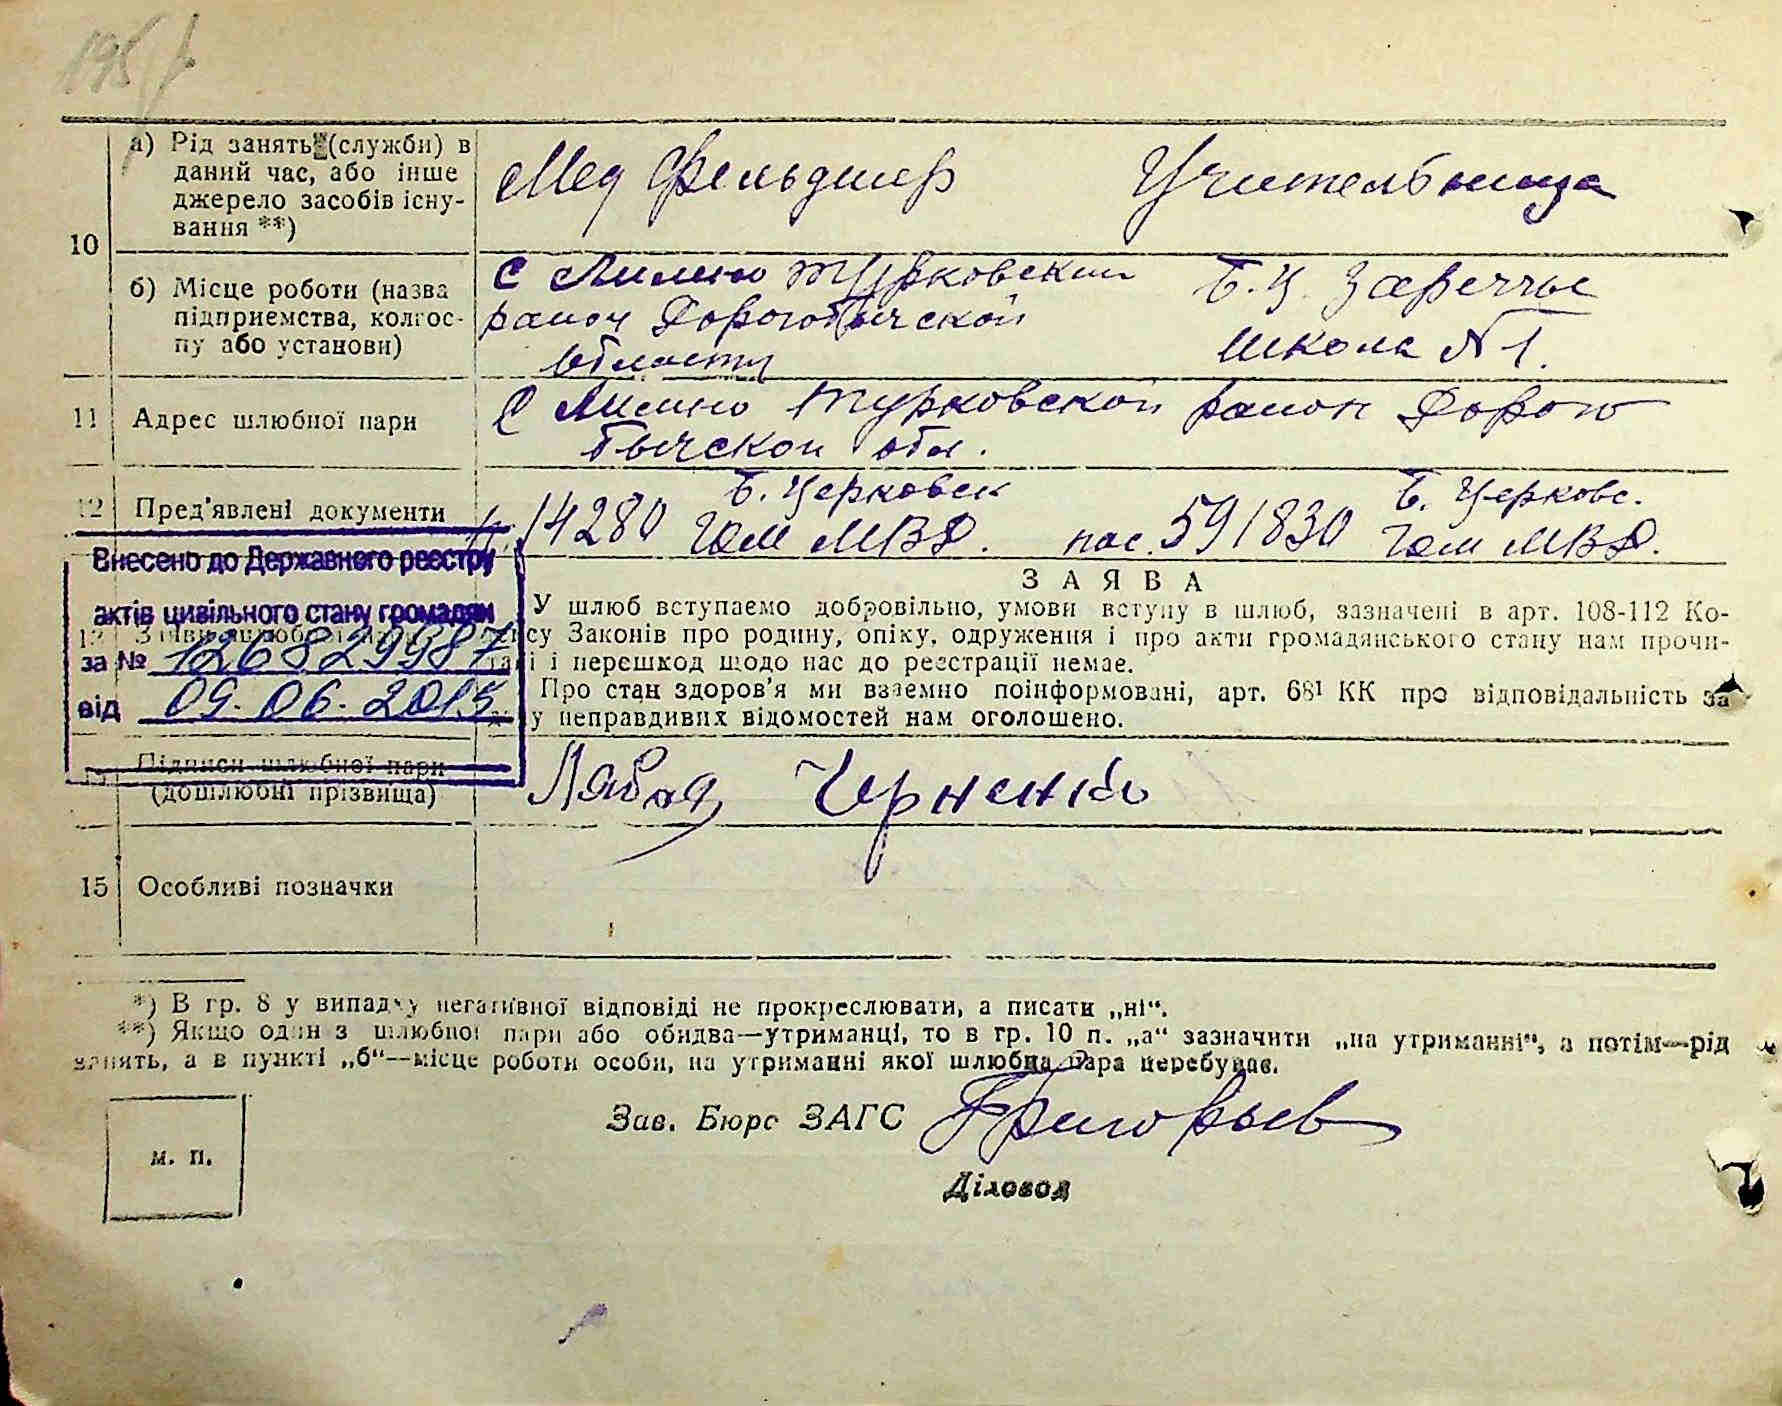 195
10
а) Рід занять (служби) в
даний час, або інше
джерело засобів існу-
вання **)
Мед Фельдшер
Учительница
б) Місце роботи (назва
підприємства, колгос-
пу або установи)
с Турковский
район Дорогобычской
области
Б. Ц. Заречье
Школа № 1.
11
Адрес шлюбної пари
с Турковской район Дорого
бычской обл.
12
Пред'явлені документи
14280 Б. Церковск
Гом МВД.
пас. 591830 Б. Церковс.
Гом МВД.
Внесено до Державного реєстру
актів цивільного стану громадян
за № 126829987
від 09.06.2015
ЗАЯВА
У шлюб вступаємо добровільно, умови вступу в шлюб, зазначені в арт. 108-112 Ко-
су Законів про родину, опіку, одруження і про акти громадянського стану нам прочи-
і перешкод щодо нас до реєстрації немає.
Про стан здоров'я ми взаємно поінформовані, арт. 68¹ КК про відповідальність за
у неправдивих відомостей нам оголошено.
Підписи шлюбної пари
(дошлюбні прізвища)
Черненко
15
Особливі позначки
*) В гр. 8 у випадку негативної відповіді не прокреслювати, а писати „ні“.
**) Якщо один з шлюбної пари або обидва—утриманці, то в гр. 10 п. „а“ зазначити „на утриманні“, а потім—рід
занять, а в пункті „б“—місце роботи особи, на утриманні якої шлюбна пара перебуває.
Зав. Бюро ЗАГС Григорьев
м. п.
Діловод